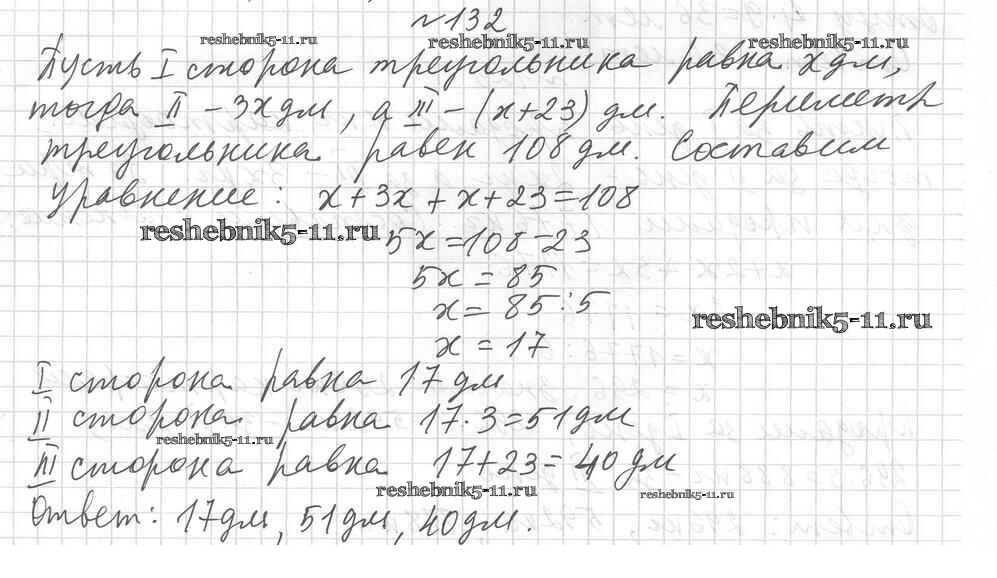 №132
reshebnik5-11.ru reshebnik5-11.ru reshebnik5-11.ru
Пусть I сторона треугольника равна x дм,
тогда II – 3x дм, а III – (x+23) дм. Периметр
треугольника равен 108 дм. Составим
уравнение: x+3x+x+23=108
reshebnik5-11.ru 5x=108-23
5x=85
x=85:5
reshebnik5-11.ru
x=17
I сторона равна 17 дм
II сторона равна 17·3=51 дм
reshebnik5-11.ru
III сторона равна 17+23=40 дм
reshebnik5-11.ru reshebnik5-11.ru
Ответ: 17 дм, 51 дм, 40 дм.